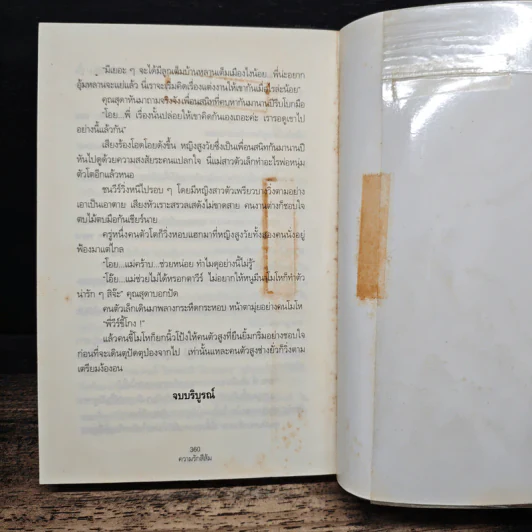 "มีเยอะ ๆ จะได้มีลูกเต็มบ้านหลานเต็มเมืองไงน้อย...พี่น่ะอยาก
อุ้มหลานจะแย่แล้ว นี่เราจะเริ่มคิดเรื่องแต่งงานให้เขากันเมื่อไรล่ะน้อย"
คุณสุดาหันมาถามจริงจังเพื่อนสนิทที่คบหากันมานานปีรีบโบกมือ
"โอย...พี่ เรื่องนั้นปล่อยให้เขาคิดกันเองเถอะค่ะ เรารอดูเขาไป
อย่างนี้แล้วกัน"
เสียงร้องโอดโอยดังขึ้น หญิงสูงวัยซึ่งเป็นเพื่อนสนิทกันมานานปี
หันไปดูด้วยความสงสัยระคนแปลกใจ นี่แม่สาวตัวเล็กทำอะไรพ่อหนุ่ม
ตัวโตอีกแล้วหนอ
ชนวีร์วิ่งหนีไปรอบ ๆ โดยมีหญิงสาวตัวเพรียวบางวิ่งตามอย่าง
เอาเป็นเอาตาย เสียงหัวเราะสรวลเสดังไม่ขาดสาย คนงานต่างก็ชอบใจ
ตบไม้ตบมือกันเชียร์นาย
ครู่หนึ่งคนตัวโตก็วิ่งหอบแฮกมาที่หญิงสูงวัยทั้งสองคนนั่งอยู่
ฟ้องมาแต่ไกล
"โอย...แม่คร้าบ...ช่วยหน่อย ทำไมดุอย่างนี้ไม่รู้"
"โอ๊ย...แม่ช่วยไม่ได้หรอกตาวีร์ ไม่อยากให้หนูมีนโมโหก็ทำตัว
น่ารัก ๆ สิจ๊ะ" คุณสุดาบอกปัด
คนตัวเล็กเดินมาพลางกระหืดกระหอบ หน้าตามุ่ยอย่างคนโมโห
"พี่วีร์ขี้โกง !"
แล้วคนขี้โมโหก็ยกนิ้วโป้งให้คนตัวสูงที่ยืนยิ้มกริ่มอย่างชอบใจ
ก่อนที่จะเดินตุปัดตุป่องจากไป เท่านั้นแหละคนตัวสูงช่างยั่วก็วิ่งตาม
เตรียมง้องอน
จบบริบูรณ์
360
ความรักสีส้ม